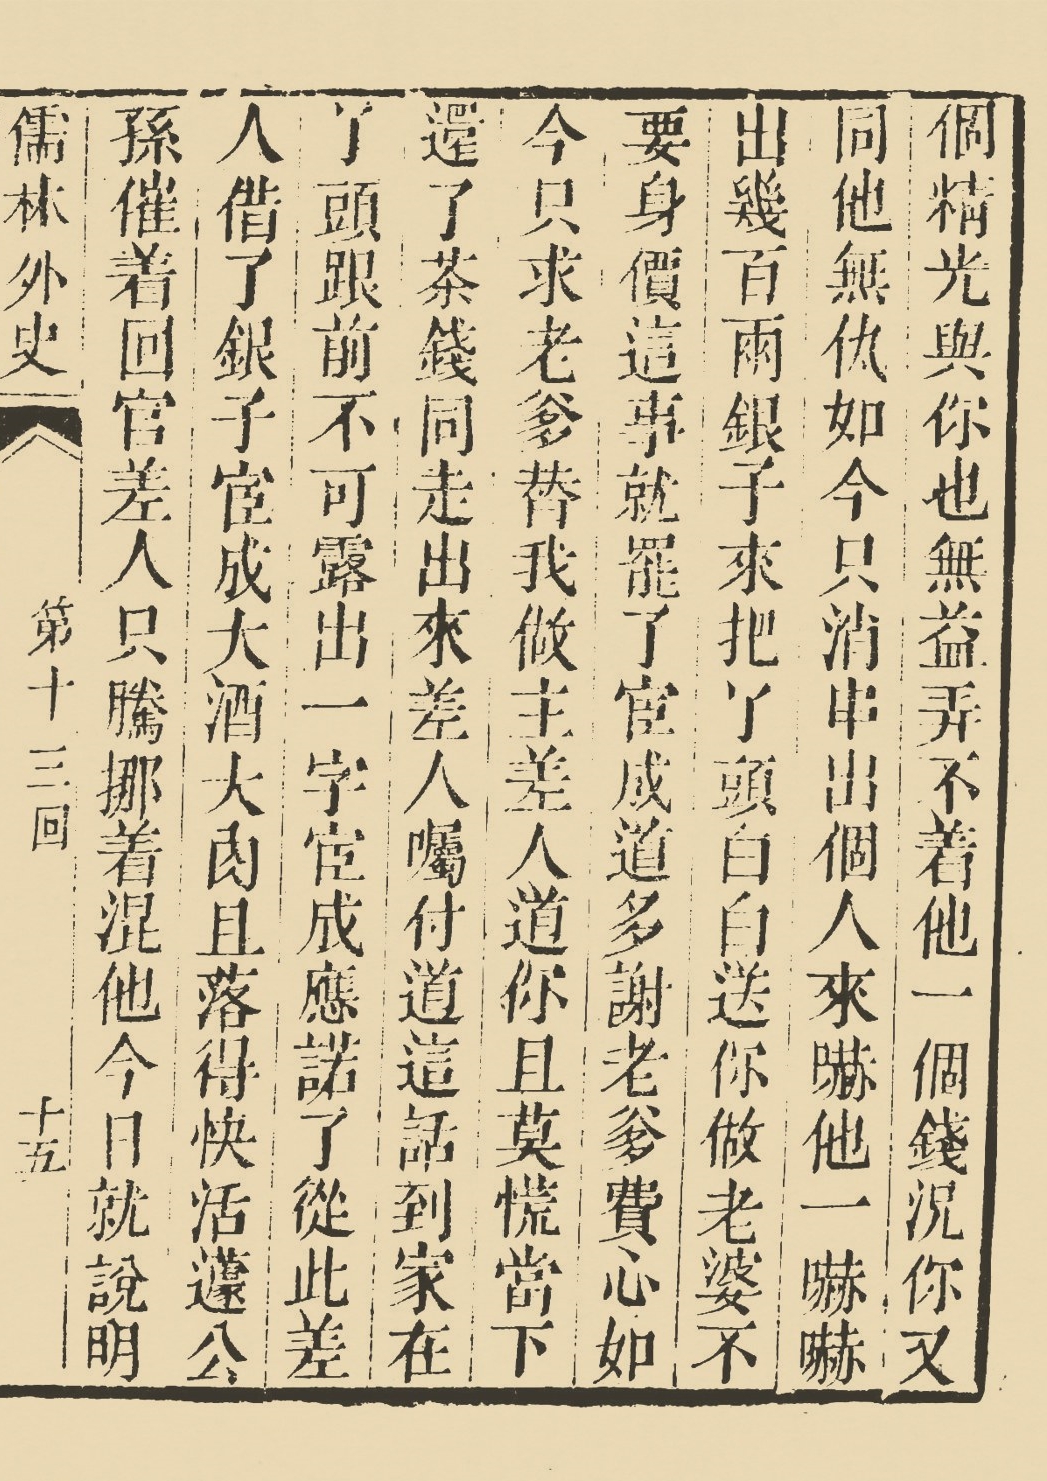 個精光與你也無益弄不着他一個錢況你又
同他無仇如今只消串出個人來嚇他一嚇嚇
出幾百兩銀子來把丫頭白白送你做老婆不
要身價這事就罷了宦成道多謝老爹費心如
今只求老爹替我做主差人道你且莫慌當下
還了茶錢同走出來差人囑付道這話到家在
丫頭跟前不可露出一字宦成應諾了從此差
人借了銀子宦成大酒大肉且落得快活蘧公
孫催着回官差人只騰挪着混他今日就說明
儒林外史
第十三回
十五